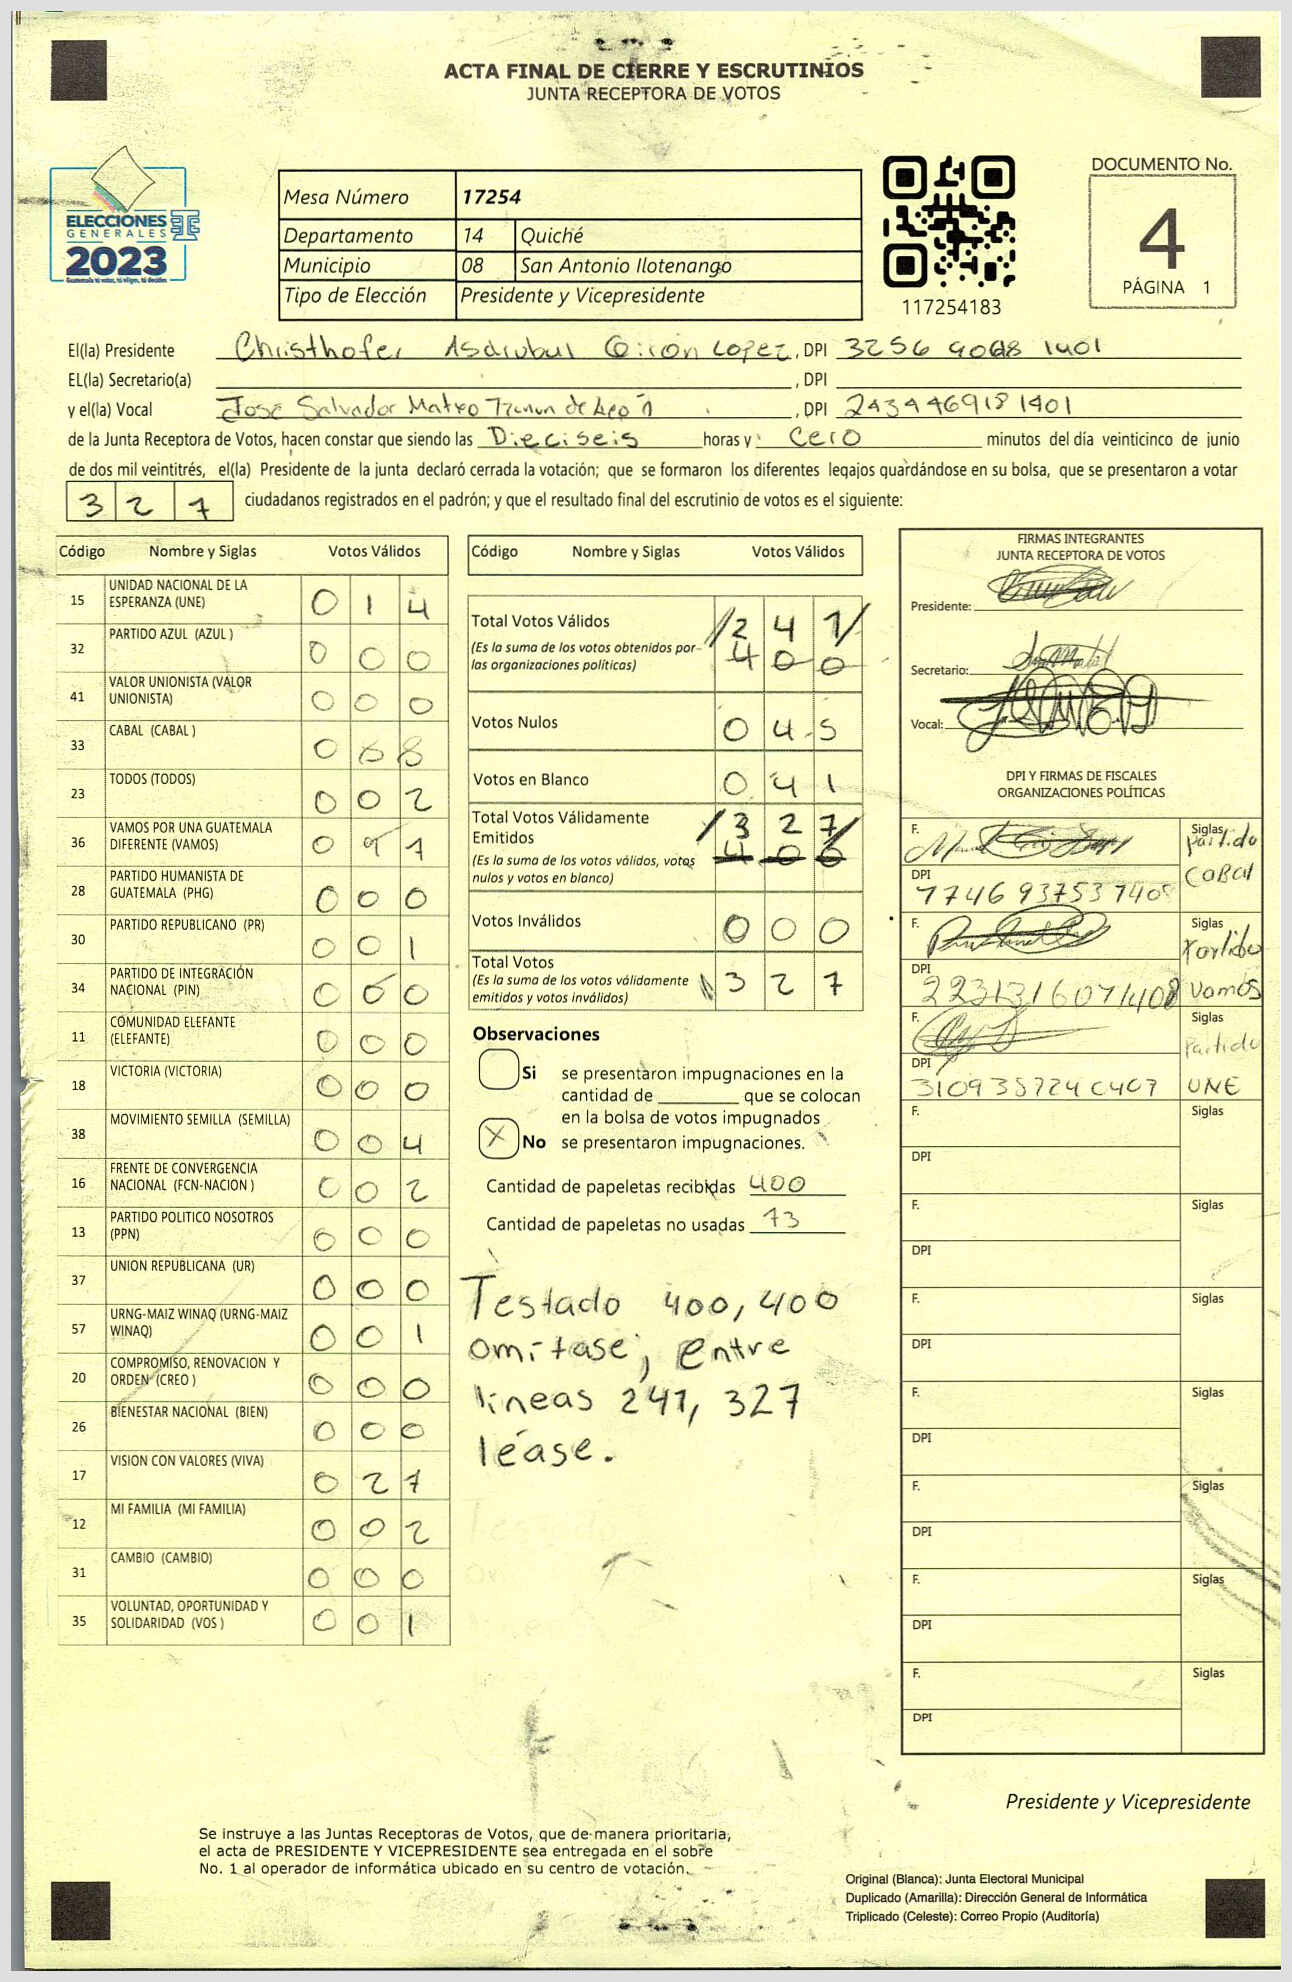 ACTA FINAL DE CIERRE Y ESCRUTINIOS
JUNTA RECEPTORA DE VOTOS
ELECCIONES
GENERALES
2023
Mesa Número 17254
Departamento 14 Quiché
Municipio 08 San Antonio Ilotenango
Tipo de Elección Presidente y Vicepresidente
117254183
DOCUMENTO No.
4
PÁGINA 1
El(la) Presidente Christhofer Asdrubul Girón Lopez, DPI 3256 9068 1401
EL(la) Secretario(a) , DPI
y el(la) Vocal José Salvador Mateo de León , DPI 2434469181401
de la Junta Receptora de Votos, hacen constar que siendo las Dieciseis horas y Cero minutos del día veinticinco de junio
de dos mil veintitrés, el(la) Presidente de la junta declaró cerrada la votación; que se formaron los diferentes legajos quardándose en su bolsa, que se presentaron a votar
327 ciudadanos registrados en el padrón; y que el resultado final del escrutinio de votos es el siguiente:
Código Nombre y Siglas Votos Válidos
15 UNIDAD NACIONAL DE LA ESPERANZA (UNE) 0 1 4
32 PARTIDO AZUL (AZUL ) 0 0 0
41 VALOR UNIONISTA (VALOR UNIONISTA) 0 0 0
33 CABAL (CABAL ) 0 8
23 TODOS (TODOS) 0 0 2
36 VAMOS POR UNA GUATEMALA DIFERENTE (VAMOS) 0 9 7
28 PARTIDO HUMANISTA DE GUATEMALA (PHG) 0 0 0
30 PARTIDO REPUBLICANO (PR) 0 0 1
34 PARTIDO DE INTEGRACIÓN NACIONAL (PIN) 0 0 0
11 COMUNIDAD ELEFANTE (ELEFANTE) 0 0 0
18 VICTORIA (VICTORIA) 0 0 0
38 MOVIMIENTO SEMILLA (SEMILLA) 0 0 4
16 FRENTE DE CONVERGENCIA NACIONAL (FCN-NACION ) 0 0 2
13 PARTIDO POLITICO NOSOTROS (PPN) 0 0 0
37 UNION REPUBLICANA (UR) 0 0 0
57 URNG-MAIZ WINAQ (URNG-MAIZ WINAQ) 0 0 1
20 COMPROMISO, RENOVACION Y ORDEN (CREO ) 0 0 0
26 BIENESTAR NACIONAL (BIEN) 0 0 0
17 VISION CON VALORES (VIVA) 0 2 7
12 MI FAMILIA (MI FAMILIA) 0 0 2
31 CAMBIO (CAMBIO) 0 0 0
35 VOLUNTAD, OPORTUNIDAD Y SOLIDARIDAD (VOS ) 0 0 1
Código Nombre y Siglas Votos Válidos
Total Votos Válidos /2 4 1/
(Es la suma de los votos obtenidos por las organizaciones políticas) 4 0 0
Votos Nulos 0 4 5
Votos en Blanco 0 4 1
Total Votos Válidamente Emitidos /3 2 7/
(Es la suma de los votos válidos, votos nulos y votos en blanco) 4 0 0
Votos Inválidos 0 0 0
Total Votos 3 2 7
(Es la suma de los votos válidamente emitidos y votos inválidos)
Observaciones
Si se presentaron impugnaciones en la
cantidad de ________ que se colocan
en la bolsa de votos impugnados
X No se presentaron impugnaciones.
Cantidad de papeletas recibidas 400
Cantidad de papeletas no usadas 73
Testado 400, 400
omítase; entre
líneas 241, 327
léase.
FIRMAS INTEGRANTES
JUNTA RECEPTORA DE VOTOS
Presidente:
Secretario:
Vocal:
DPI Y FIRMAS DE FISCALES
ORGANIZACIONES POLÍTICAS
F. Siglas Partido CABAL
DPI 7746 93753 1408
F. Siglas Partido Vamos
DPI 2231316071408
F. Siglas Partido UNE
DPI 3109357240407
F. Siglas
DPI
F. Siglas
DPI
F. Siglas
DPI
F. Siglas
DPI
F. Siglas
DPI
F. Siglas
DPI
F. Siglas
DPI
Presidente y Vicepresidente
Se instruye a las Juntas Receptoras de Votos, que de manera prioritaria,
el acta de PRESIDENTE Y VICEPRESIDENTE sea entregada en el sobre
No. 1 al operador de informática ubicado en su centro de votación.
Original (Blanca): Junta Electoral Municipal
Duplicado (Amarilla): Dirección General de Informática
Triplicado (Celeste): Correo Propio (Auditoría)